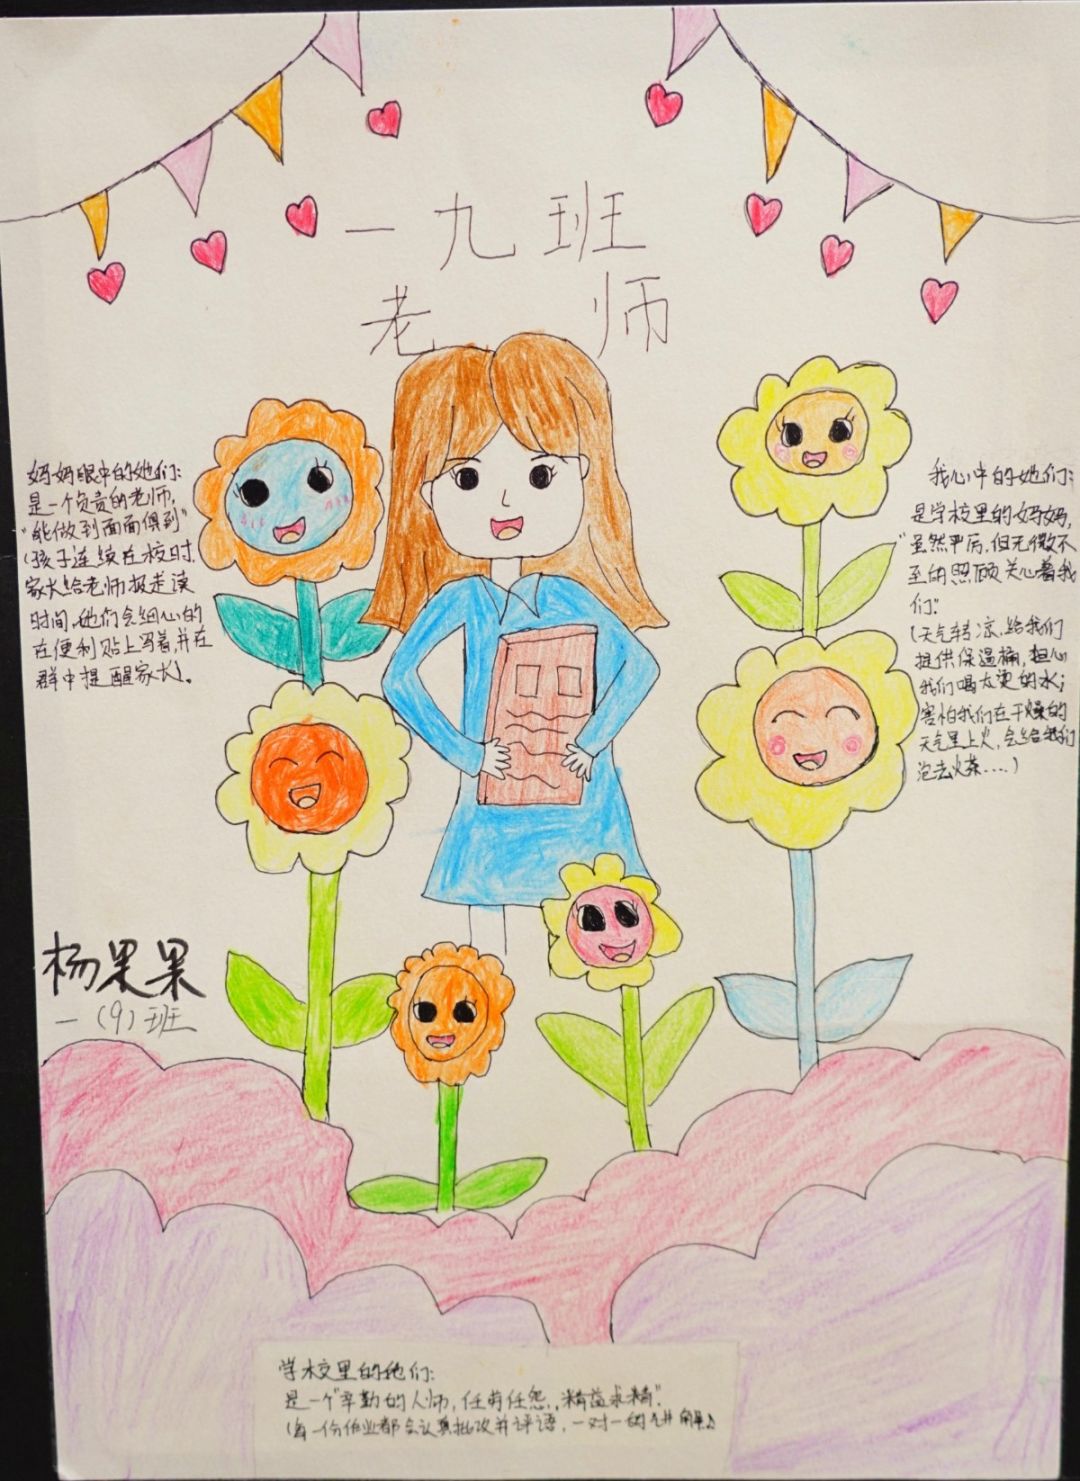 一九班
老师
妈妈眼中的她们：
是一个负责的老师，
"能做到面面俱到"
(孩子连续在校时，
家长给老师报走读
时间，她们会细心的
在便利贴上写着，并在
群中提醒家长)。
我心中的她们：
是学校里的妈妈，
"虽然严厉，但无微不
至的照顾关心着我
们"
(天气转凉，给我们
提供保温桶，担心
我们喝太烫的水；
害怕我们在干燥的
天气里上火，会给我们
泡去火茶....)
杨果果
一（9）班
学校里的他们：
是一个"辛勤的人师，任劳任怨，精益求精"
(每一份作业都会认真批改并评语，一对一的讲解)